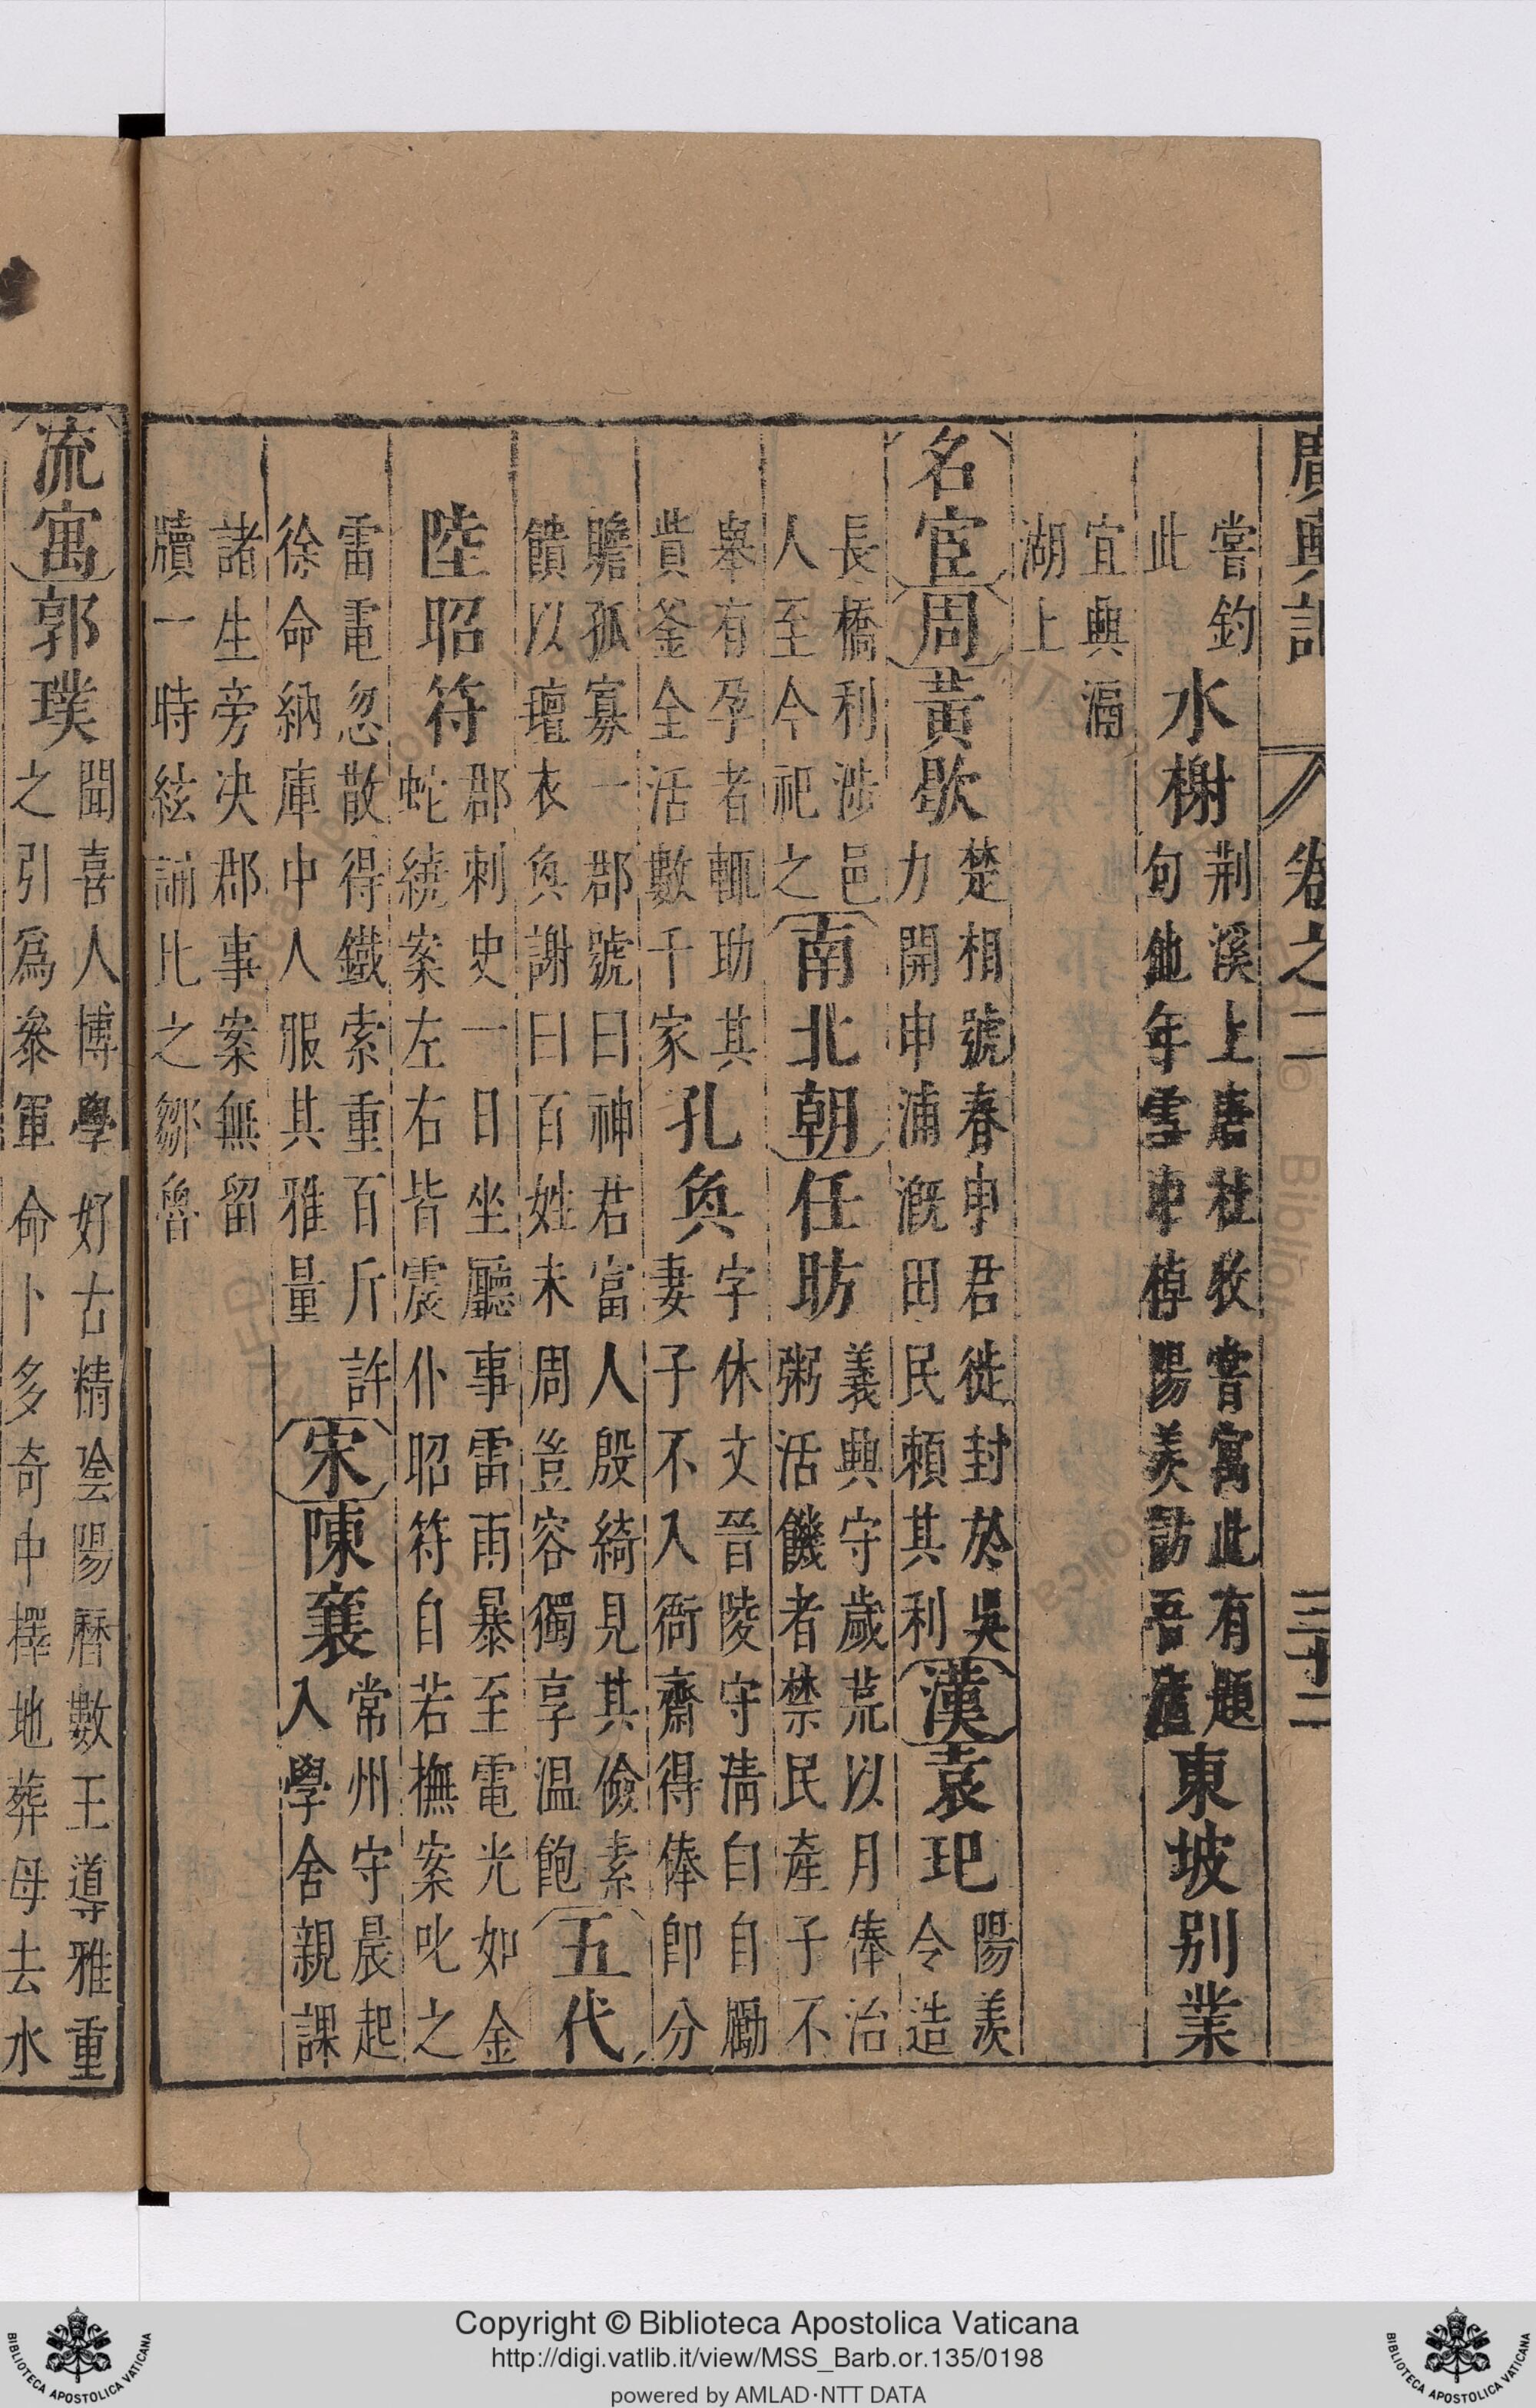 廣輿記 卷之二 三十二
嘗釣
此
水榭
荆溪上唐杜牧嘗寓此有題
句他年雪中棹陽羨訪吾廬
東坡别業
宜興滆
湖上
名宦
周
黃歇
楚相號春申君徙封於吳
力開申浦溉田民賴其利
漢
袁玘
陽羨
令造
長橋利涉邑
人至今祀之
南北朝
任昉
義興守歲荒以月俸治
粥活饑者禁民產子不
舉有孕者輒助其
貲釜全活數千家
孔奐
字休文晉陵守淸白自勵
妻子不入衙齋得俸卽分
贍孤寡一郡號曰神君富人殷綺見其儉素
饋以氊衣奐謝曰百姓未周豈容獨享温飽
五代
陸昭符
郡刺史一日坐廳事雷雨暴至電光如金
蛇繞案左右皆震仆昭符自若撫案叱之
雷電忽散得鐵索重百斤許
徐命納庫中人服其雅量
宋
陳襄
常州守晨起
入學舍親課
諸生旁决郡事案無留
牘一時絃誦比之鄒魯
流寓
郭璞
聞喜人博學好古精陰陽曆數王導雅重
之引爲參軍命卜多奇中擇地葬母去水
Copyright © Biblioteca Apostolica Vaticana
http://digi.vatlib.it/view/MSS_Barb.or.135/0198
powered by AMLAD·NTT DATA
BIBLIOTECA APOSTOLICA VATICANA
BIBLIOTECA APOSTOLICA VATICANA